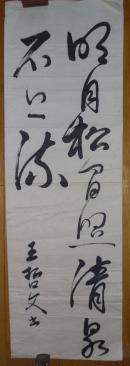 明月松间照清泉
石上流
王哲文书